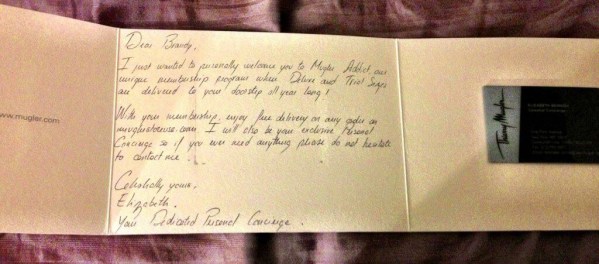 www.mugler.com
Dear Brandy,
I just wanted to personally welcome you to Mugler Addict, our
unique membership program where Deluxe and Trial Sizes
are delivered to your doorstep all year long!
With your membership, enjoy free delivery on any order on
I will also be your exclusive Personal
Concierge so if you ever need anything please do not hesitate
to contact me
Celestially yours,
Elizabeth.
Your Dedicated Personal Concierge.
Thierry Mugler
ELIZABETH